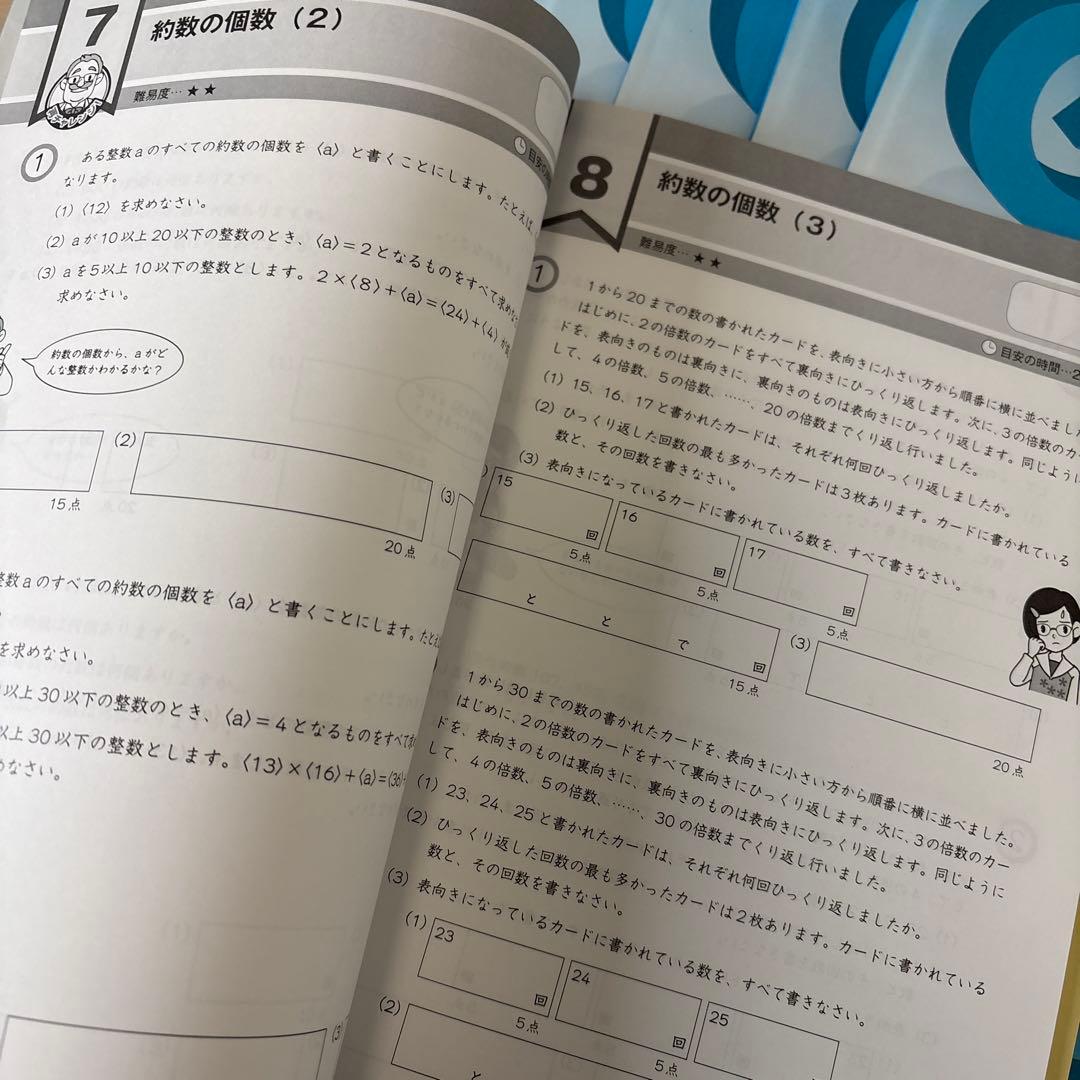 7
約数の個数（2）
難易度…★★
チャレンジ
目安の
1
ある整数aのすべての約数の個数を〈a〉と書くことにします。たとえば
なります。
(1)〈12〉を求めなさい。
(2) aが10以上20以下の整数のとき、〈a〉＝2となるものをすべて求め
(3) aを5以上10以下の整数とします。2×〈8〉＋〈a〉＝〈24〉＋〈4〉が
求めなさい。
約数の個数から、aがど
んな整数かわかるかな？
(2)
(3)
15点
20点
整数aのすべての約数の個数を〈a〉と書くことにします。たとえ
を求めなさい。
以上30以下の整数のとき、〈a〉＝4となるものをすべて求
以上30以下の整数とします。〈13〉×〈16〉＋〈a〉＝〈36〉
めなさい。
(3)
8
約数の個数（3）
難易度…★★
目安の時間…2
1
1から20までの数の書かれたカードを、表向きに小さい方から順番に横に並べまし
はじめに、2の倍数のカードをすべて裏向きにひっくり返します。次に、3の倍数のカ
ドを、表向きのものは裏向きに、裏向きのものは表向きにひっくり返します。同じように
して、4の倍数、5の倍数、……、20の倍数までくり返し行いました。
(1) 15、16、17と書かれたカードは、それぞれ何回ひっくり返しましたか。
(2) ひっくり返した回数の最も多かったカードは3枚あります。カードに書かれている
数と、その回数を書きなさい。
(3) 表向きになっているカードに書かれている数を、すべて書きなさい。
15
回
5点
16
回
5点
17
回
5点
と
と
で
回
15点
(3)
20点
1から30までの数の書かれたカードを、表向きに小さい方から順番に横に並べました。
はじめに、2の倍数のカードをすべて裏向きにひっくり返します。次に、3の倍数のカー
ドを、表向きのものは裏向きに、裏向きのものは表向きにひっくり返します。同じように
して、4の倍数、5の倍数、……、30の倍数までくり返し行いました。
(1) 23、24、25と書かれたカードは、それぞれ何回ひっくり返しましたか。
(2) ひっくり返した回数の最も多かったカードは2枚あります。カードに書かれている
数と、その回数を書きなさい。
(3) 表向きになっているカードに書かれている数を、すべて書きなさい。
(1)
23
回
5点
24
回
5点
25
(2)
と